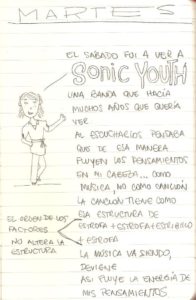 MARTES
EL SABADO FUI A VER A
SONIC YOUTH
UNA BANDA QUE HACÍA
MUCHOS AÑOS QUE QUERÍA
VER
AL ESCUCHARLOS PENSABA
QUE DE ESA MANERA
FLUYEN LOS PENSAMIENTOS
EN MI CABEZA... COMO
MÚSICA, NO COMO CANCIÓN
LA CANCIÓN TIENE COMO
ESA ESTRUCTURA DE
ESTROFA + ESTROFA + ESTRIBILLO
+ ESTROFA
EL ORDEN DE LOS
FACTORES
NO ALTERA LA
ESTRUCTURA
LA MÚSICA VA SIENDO,
DEVIENE
ASI FLUYE LA ENERGÍA DE
MIS PENSAMIENTOS